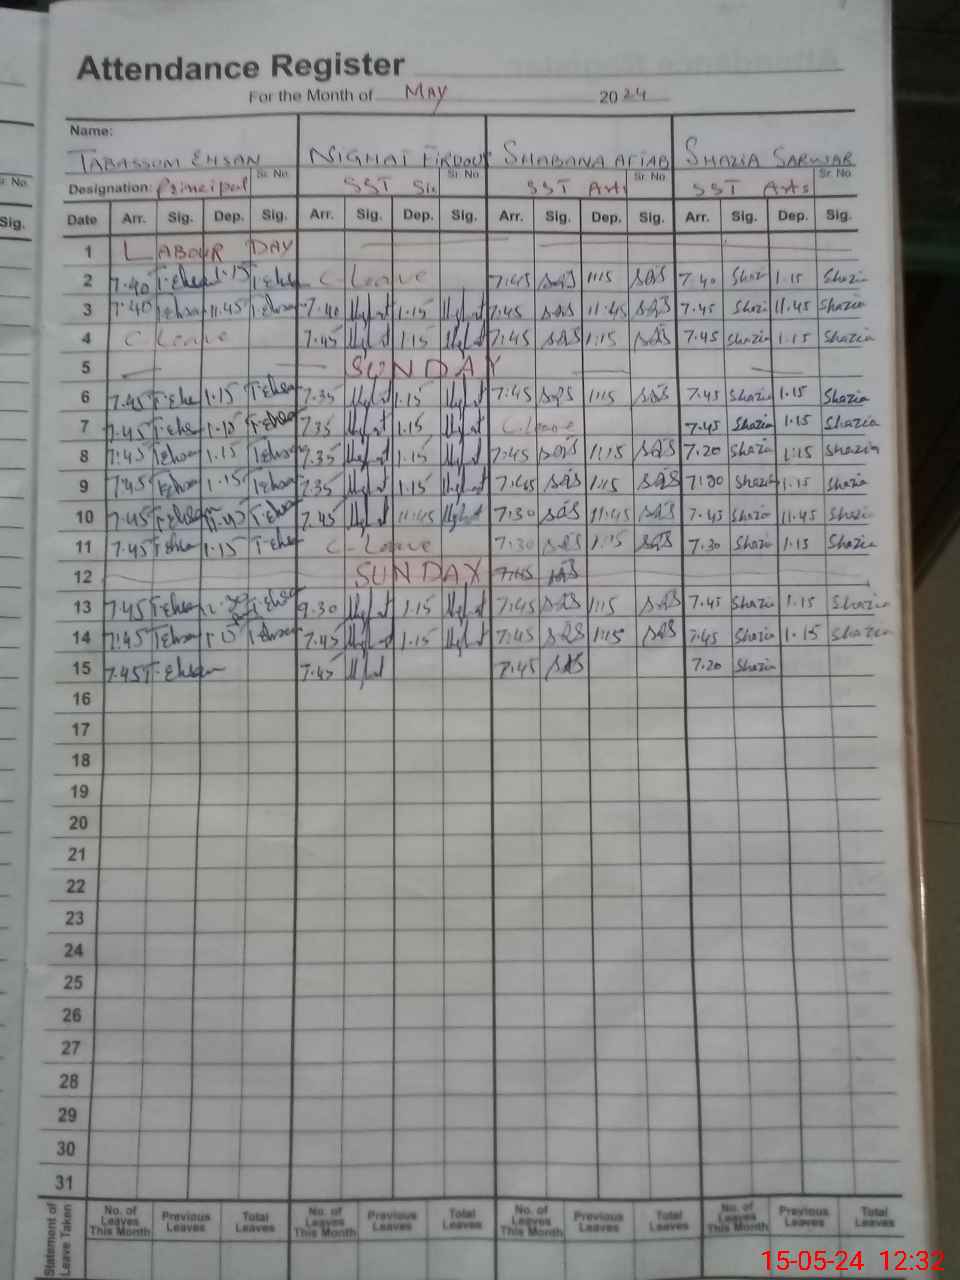 Attendance Register
For the Month of MAY 2024
Name:
TABASSUM EHSAN NIGHAT FIRDOUS SHABANA AFTAB SHAZIA SARWAR
Sr. No. Sr. No. Sr. No. Sr. No.
Designation: Principal SST Sci SST Arts SST Arts
Sig. Date Arr. Sig. Dep. Sig. Arr. Sig. Dep. Sig. Arr. Sig. Dep. Sig. Arr. Sig. Dep. Sig.
1 LABOUR DAY
2 7.40 T.Ehsan 1.15 T.Ehsan C-Leave 7:45 SAS 1:15 SAS 7.40 Shazia 1.15 Shazia
3 7:40 T.Ehsan 11.45 T.Ehsan 7.40 1.15 7:45 SAS 11:45 SAS 7.45 Shazia 11.45 Shazia
4 C Leave 7.45 1.15 7:45 SAS 1:15 SAS 7.45 Shazia 1.15 Shazia
5 SUNDAY
6 7.45 T.Ehsan 1.15 T.Ehsan 7.35 1.15 7:45 SAS 1:15 SAS 7.45 Shazia 1.15 Shazia
7 7.45 T.Ehsan 1.15 T.Ehsan 7.35 1.15 C-Leave 7.45 Shazia 1.15 Shazia
8 7:45 T.Ehsan 1.15 T.Ehsan 7.35 1.15 7:45 SAS 1:15 SAS 7.20 Shazia 1:15 Shazia
9 7.45 T.Ehsan 1.15 T.Ehsan 7.35 1.15 7:45 SAS 1:15 SAS Shazia 1.15 Shazia
10 7.45 T.Ehsan T.Ehsan 7.45 11.45 7:30 SAS 11:45 SAS 7.45 Shazia 11.45 Shazia
11 7.45 T.Ehsan 1.15 T.Ehsan C-Leave 7:30 SAS 1:15 SAS 7.30 Shazia 1.15 Shazia
12 SUNDAY 7:45 SAS
13 7.45 T.Ehsan T.Ehsan 9.30 1.15 7:45 SAS 1:15 SAS 7.45 Shazia 1.15 Shazia
14 7:45 T.Ehsan 1.15 T.Ehsan 7.45 1.15 7:45 SAS 1:15 SAS 7.45 Shazia 1.15 Shazia
15 7.45 T.Ehsan 7.45 7.45 SAS 7.20 Shazia
16
17
18
19
20
21
22
23
24
25
26
27
28
29
30
31
Statement of Leave Taken
No. of Leaves This Month Previous Leaves Total Leaves No. of Leaves This Month Previous Leaves Total Leaves No. of Leaves This Month Previous Leaves Total Leaves No. of Leaves This Month Previous Leaves Total Leaves
15-05-24 12:32